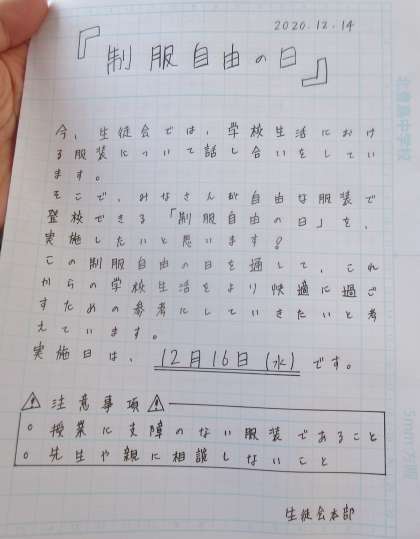 2020.12.14
『制服自由の日』
今、生徒会では、学校生活におけ
る服装について話し合いをしてい
ます。
そこで、みなさんが自由な服装で
登校できる「制服自由の日」を、
実施したいと思います?
この制服自由の日を通して、これ
からの学校生活をより快適に過ご
すための参考にしていきたいと考
えています。
実施日は、12月16日(水)です。
⚠注意事項⚠
○授業に支障のない服装であること
○先生や親に相談しないこと
生徒会本部
5mm方眼